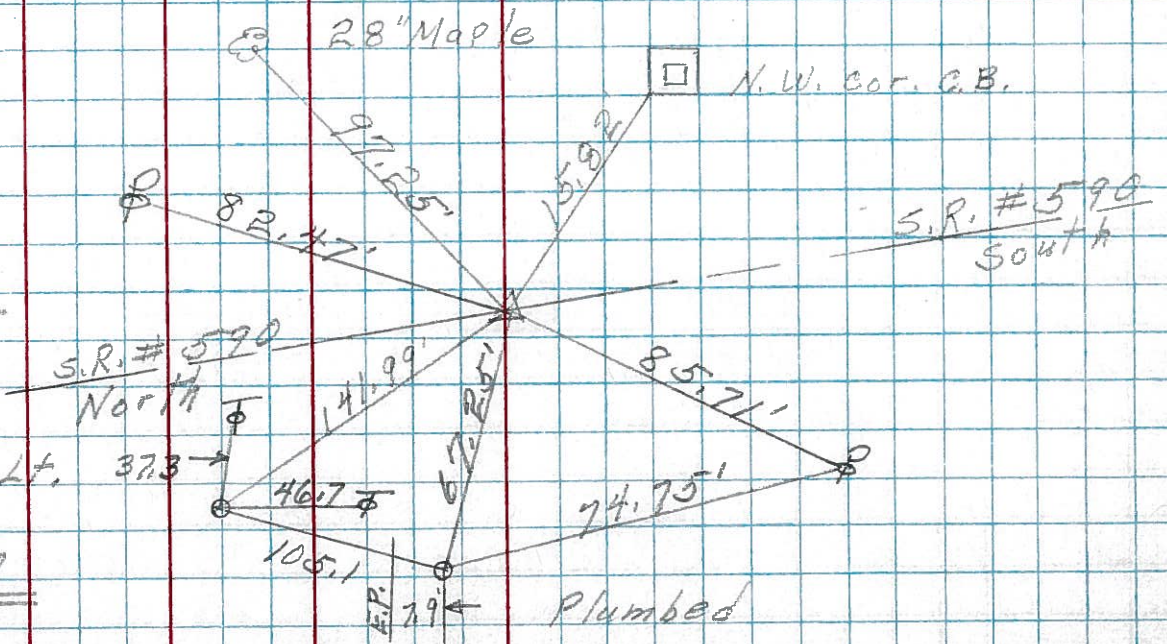 28" Maple
N.W. cor. C.B.
97.25'
15.82
82.47'
S.R. # 590
South
S.R. # 590
North
141.99'
67.25'
85.71'
Lt.
37.3
46.7
74.75'
105.1
E.P.
7.9'
Plumbed